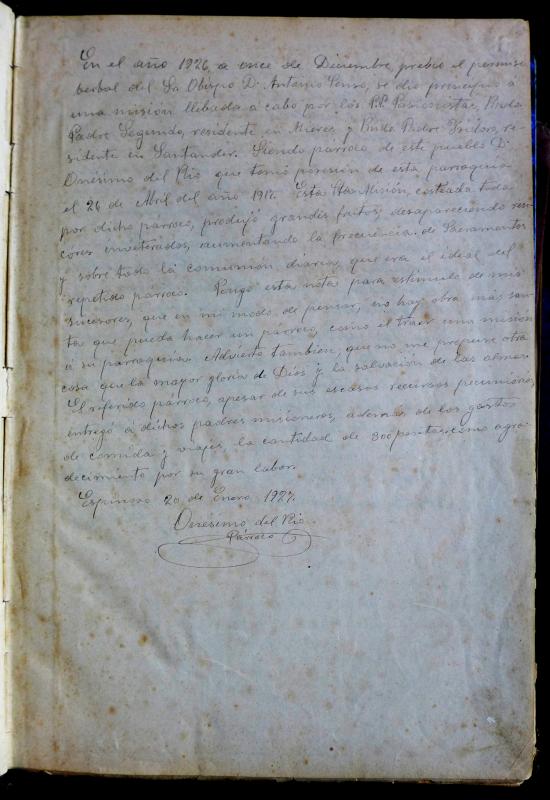 En el año 1926 a once de Diciembre, prebio el permiso
berbal del Sr Obispo D. Antonio Senso, se dio principio á
una misión llebada a cabo por los P.P. Pasionistas, Rvdo
Padre Segundo, residente en Mieres y Rvdo Padre Isidoro, re-
sidente en Santander. Siendo párroco de este pueblo D.
Onésimo del Rio que tomó posesión de esta parroquia
el 26 de Abril del año 1917. Esta Sta Misión, costeada toda
por dicho párroco, produjó grandes frutos, desapareciendo ren-
cores inveterados, aumentando la frecuencia de Sacramentos
y sobre todo la comunión diaria, que era el ideal del
repetido párroco. Pongo esta nota para estimulo de mis
sucesores, que en mi modo de pensar, no hay obra más san-
ta que pueda hacer un párroco, como el traer una mision
á su parroquia. Advierto tambien, que no me propuse otra
cosa que la mayor gloria de Dios y la salvación de las almas.
El referido párroco, apesar de sus escasos recursos pecuniarios,
entregó á dichos padres misioneros, además de los gastos
de comida y viajes la cantidad de 300 pesetas como agra-
decimiento por su gran labor.
Espinoso 20 de Enero 1927.
Onésimo del Rio
Párroco